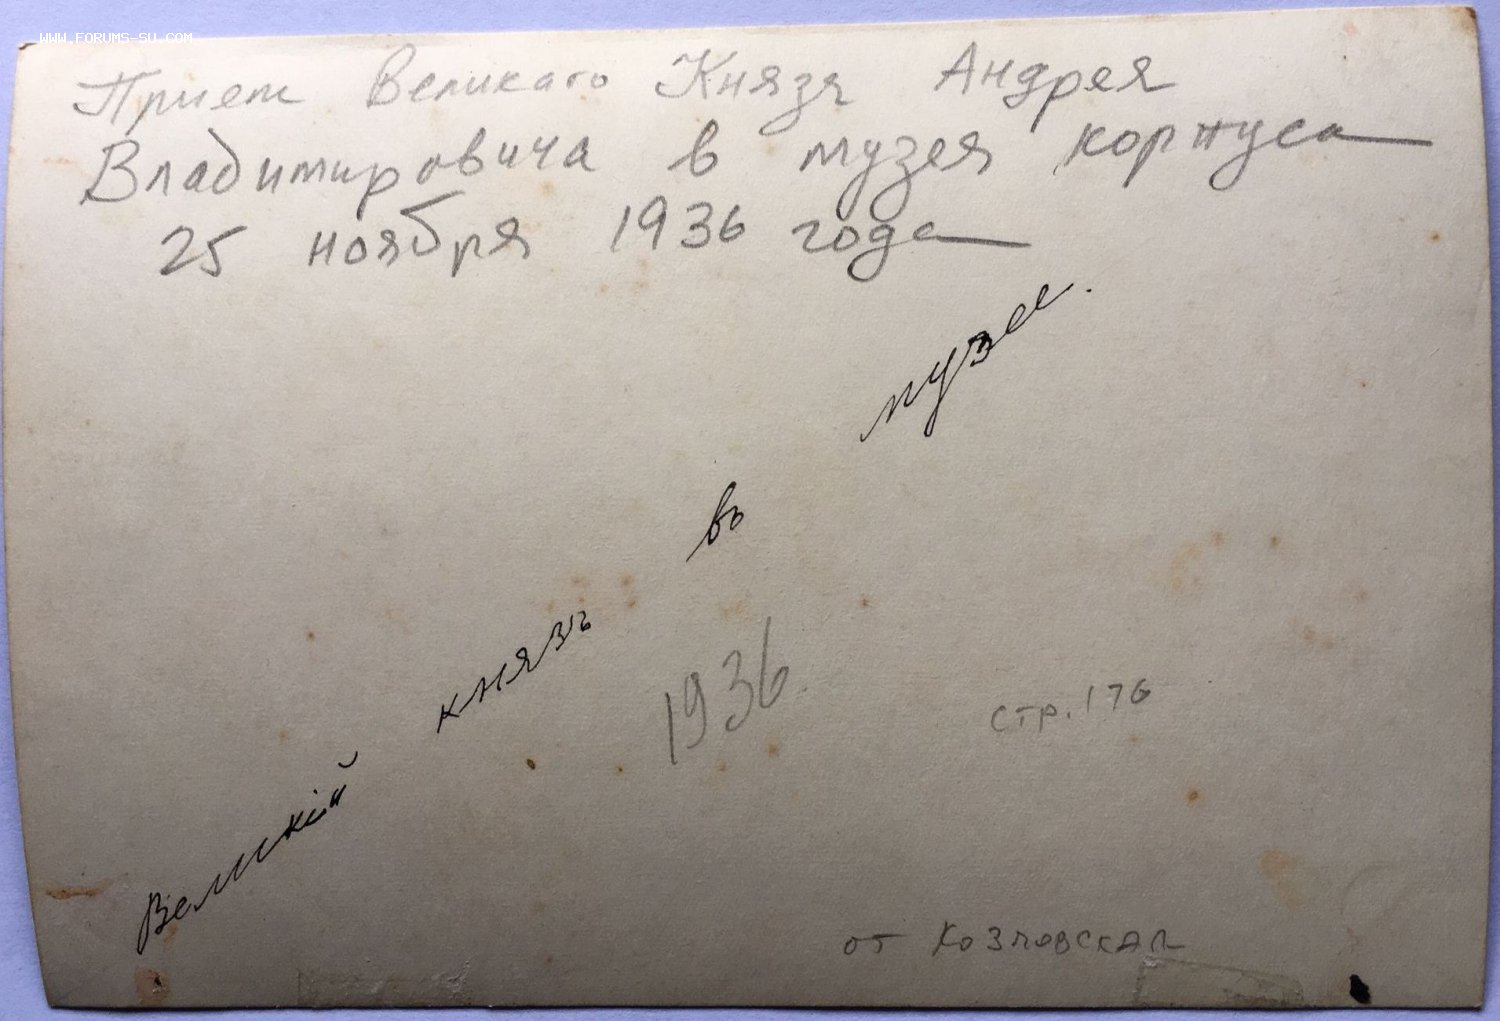 WWW.FORUMS-SU.COM
Прием Великаго Князя Андрея
Владимировича в музея корпуса
25 ноября 1936 года
Великій князь въ музее.
1936
стр. 176
от Козловская